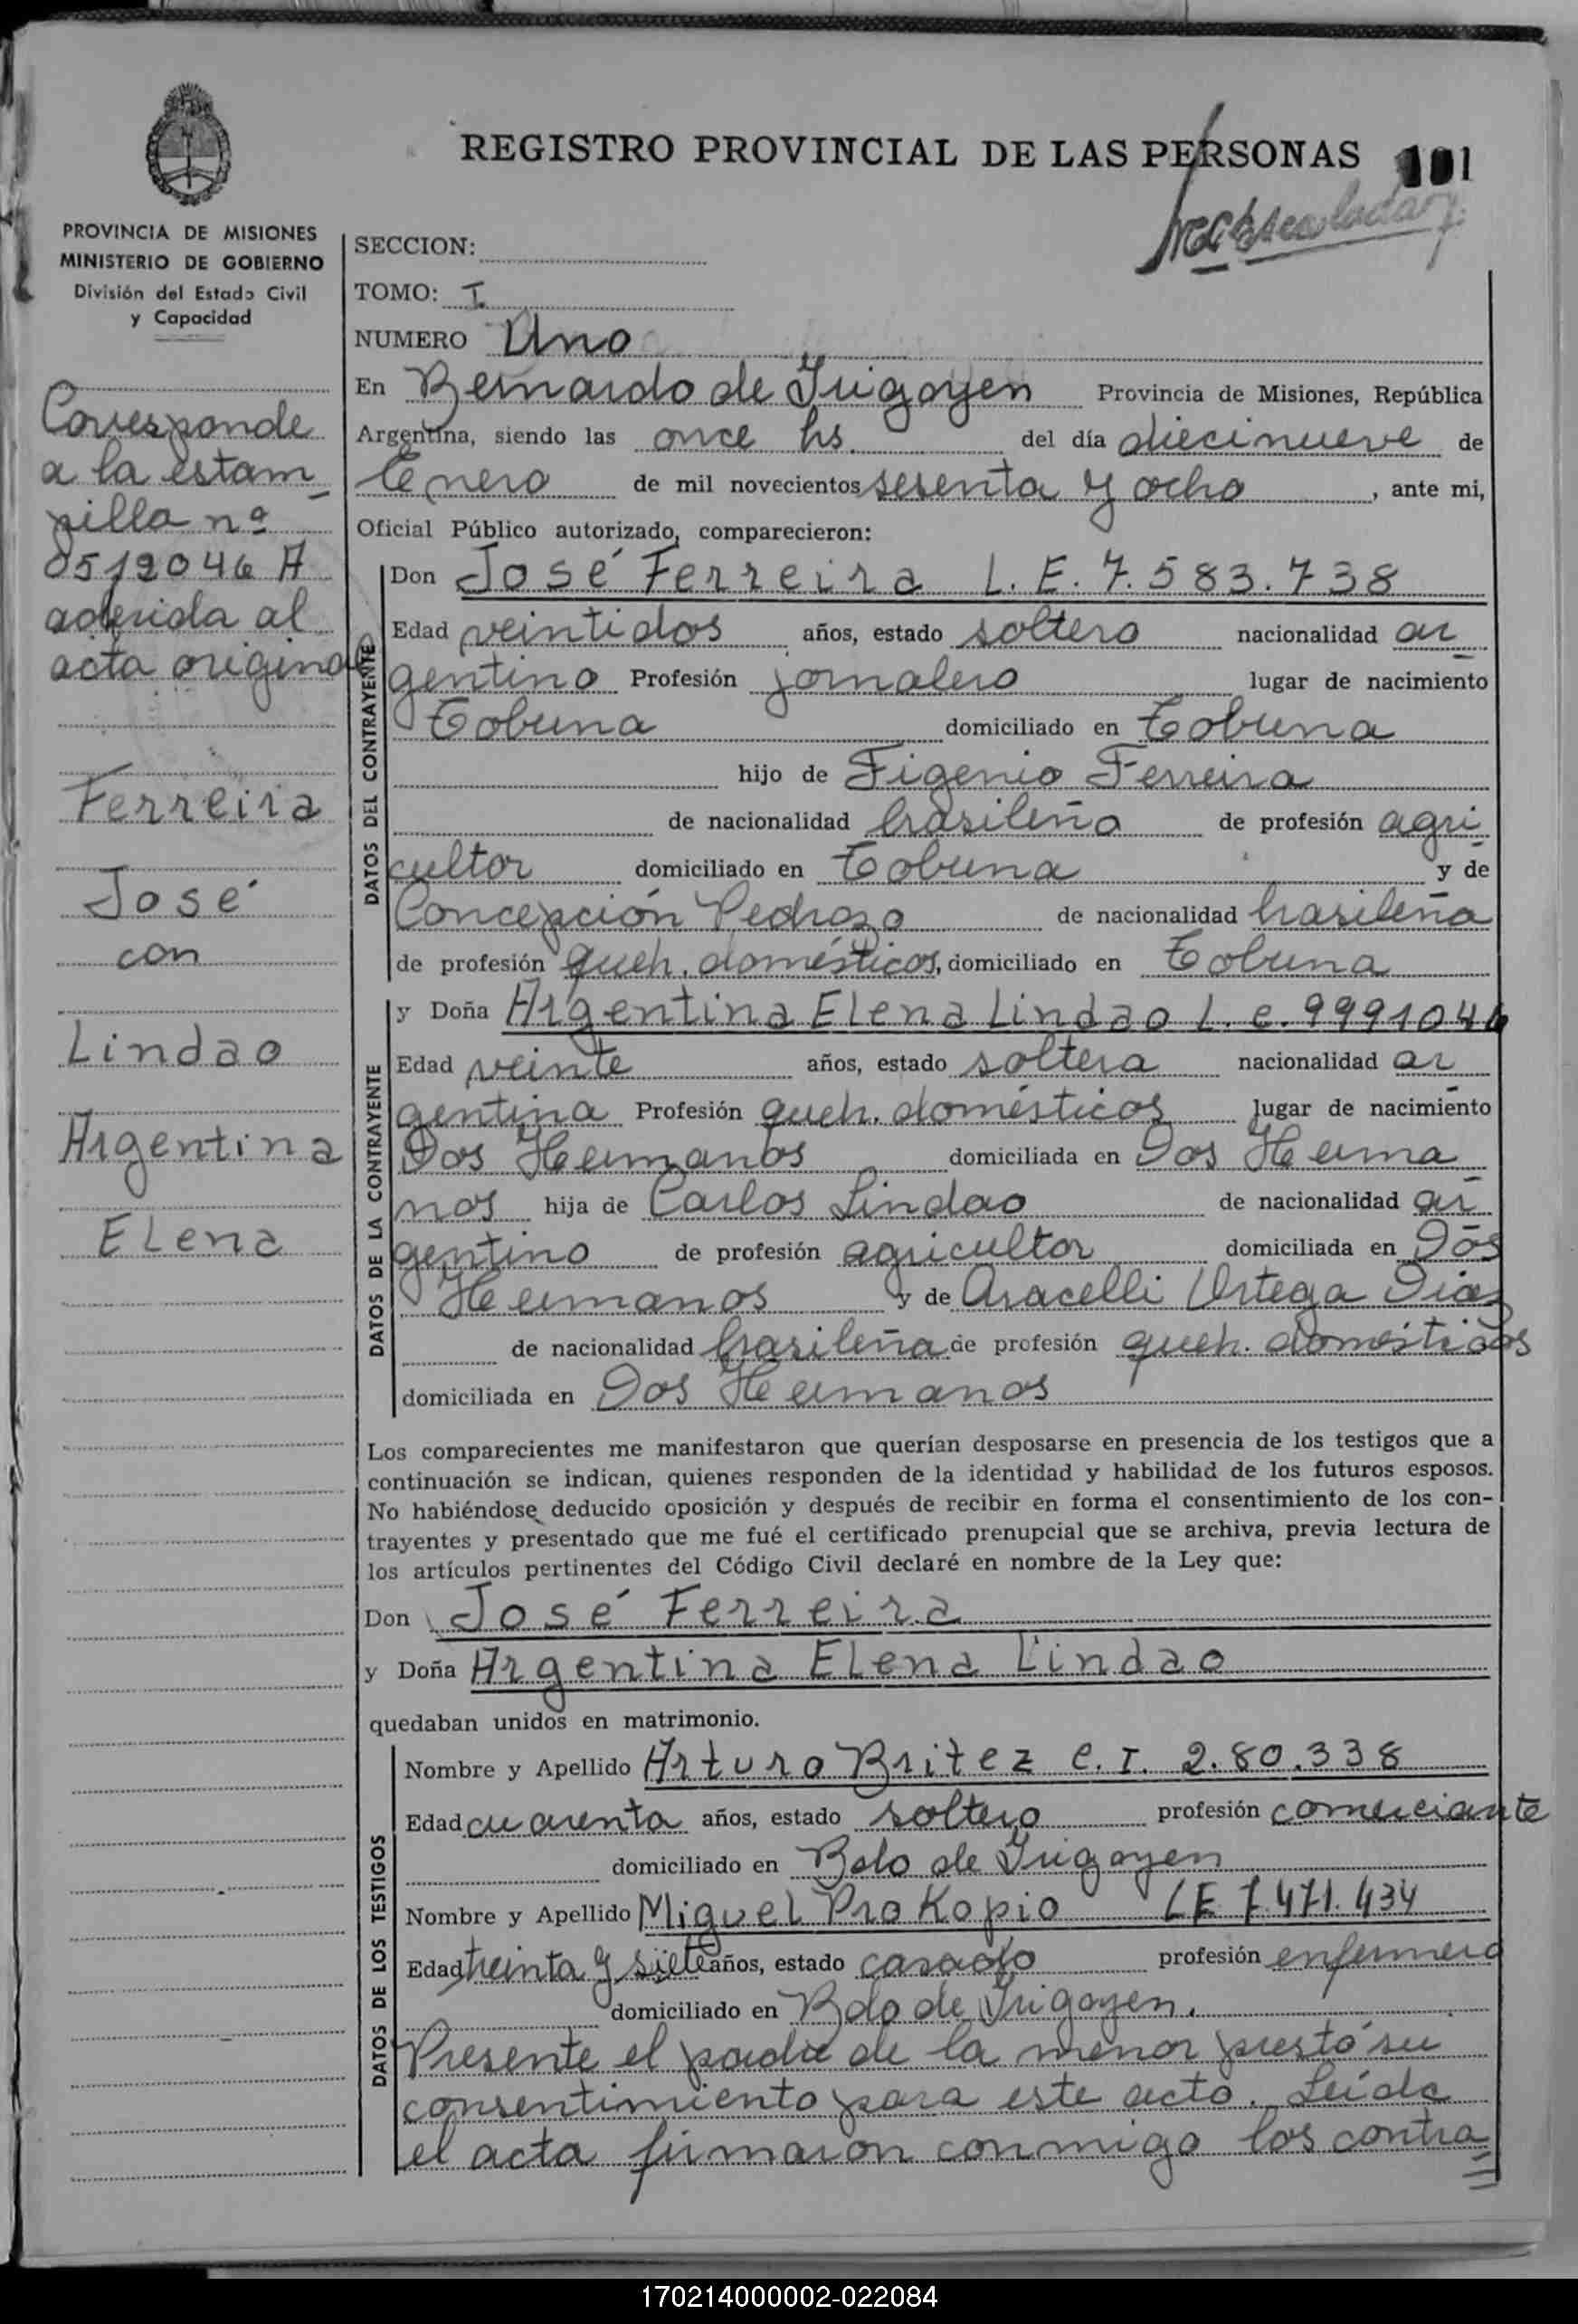 REGISTRO PROVINCIAL DE LAS PERSONAS 101
PROVINCIA DE MISIONES
MINISTERIO DE GOBIERNO
División del Estado Civil
y Capacidad
Corresponde
a la estam
pilla nº
0512046 A
aderida al
acta original
Ferreira
José
con
Lindao
Argentina
Elena
SECCION:
TOMO: I
NUMERO Uno
En Bernardo de Irigoyen Provincia de Misiones, República
Argentina, siendo las once hs. del día diecinueve de
Enero de mil novecientos sesenta y ocho, ante mi,
Oficial Público autorizado, comparecieron:
DATOS DEL CONTRAYENTE
Don José Ferreira L. E. 7.583.738
Edad veintidos años, estado soltero nacionalidad ar
gentino Profesión jornalero lugar de nacimiento
Tobuna domiciliado en Tobuna
hijo de Figenio Ferreira
de nacionalidad brasileña de profesión agri
cultor domiciliado en Tobuna y de
Concepción Pedrozo de nacionalidad brasileña
de profesión queh. domésticos, domiciliado en Tobuna
DATOS DE LA CONTRAYENTE
y Doña Argentina Elena Lindao L. C. 9991046
Edad veinte años, estado soltera nacionalidad ar
gentina Profesión queh. domésticos lugar de nacimiento
Dos Hermanos domiciliada en Dos Herma
nos hija de Carlos Lindao de nacionalidad ar
gentino de profesión agricultor domiciliada en Dos
Hermanos y de Aracelli Ortega Diaz
de nacionalidad brasileña de profesión queh. domésticos
domiciliada en Dos Hermanos
Los comparecientes me manifestaron que querían desposarse en presencia de los testigos que a
continuación se indican, quienes responden de la identidad y habilidad de los futuros esposos.
No habiéndose deducido oposición y después de recibir en forma el consentimiento de los con-
trayentes y presentado que me fué el certificado prenupcial que se archiva, previa lectura de
los artículos pertinentes del Código Civil declaré en nombre de la Ley que:
Don José Ferreira
y Doña Argentina Elena Lindao
quedaban unidos en matrimonio.
DATOS DE LOS TESTIGOS
Nombre y Apellido Arturo Britez C. I. 2.80.338
Edad cuarenta años, estado soltero profesión comerciante
domiciliado en Bdo de Irigoyen
Nombre y Apellido Miguel Prokopio LE 7.471.434
Edad treinta y siete años, estado casado profesión enfermero
domiciliado en Bdo de Irigoyen.
Presente el padre de la menor prestó su
consentimiento para este acto. Leída
el acta firmaron conmigo los contra
170214000002-022084